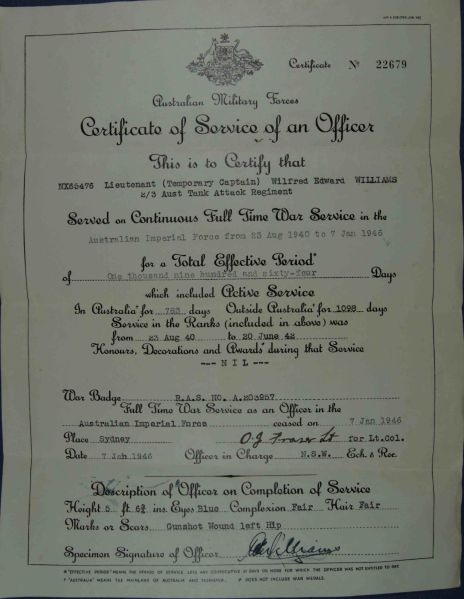 Certificate Nº 22679
Australian Military Forces
Certificate of Service of an Officer
This is to Certify that
NX65476 Lieutenant (Temporary Captain) Wilfred Edward WILLIAMS
2/3 Aust Tank Attack Regiment
Served on Continuous Full Time War Service in the
Australian Imperial Force from 23 Aug 1940 to 7 Jan 1946
for a Total Effective Period*
of One thousand nine hundred and sixty-four Days
which included Active Service
In Australia for 763 days Outside Australia for 1098 days
Service in the Ranks (included in above) was
from 23 Aug 40 to 20 June 42
Honours, Decorations and Awards during that Service
--- NIL ---
War Badge R.A.S. NO. A.203957
Full Time War Service as an Officer in the
Australian Imperial Force ceased on 7 Jan 1946
Place Sydney O.J. Fraser Lt for Lt.Col.
Date 7 Jan 1946 Officer in Charge N.S.W. Ech. & Rec.
Description of Officer on Completion of Service
Height 5 ft 6¾ ins. Eyes Blue Complexion Fair Hair Fair
Marks or Scars Gunshot Wound left Hip
Specimen Signature of Officer Williams
* "EFFECTIVE PERIOD" MEANS THE PERIOD OF SERVICE LESS ANY CONSECUTIVE 21 DAYS OR MORE FOR WHICH THE OFFICER WAS NOT ENTITLED TO PAY.
"AUSTRALIA" MEANS THE MAINLAND OF AUSTRALIA AND TASMANIA. DOES NOT INCLUDE WAR MEDALS.